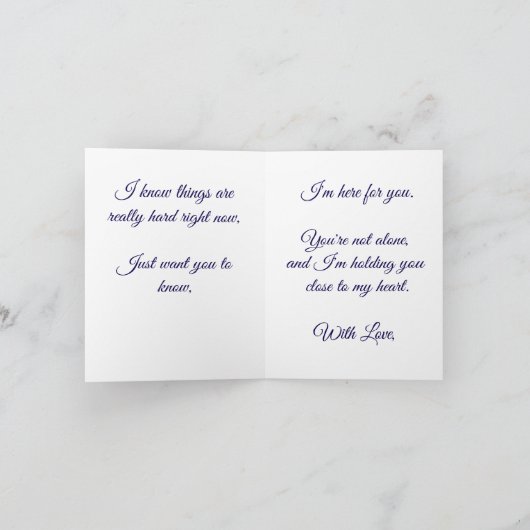 I know things are
really hard right now,
Just want you to
know,
I'm here for you.
You're not alone,
and I'm holding you
close to my heart.
With Love,